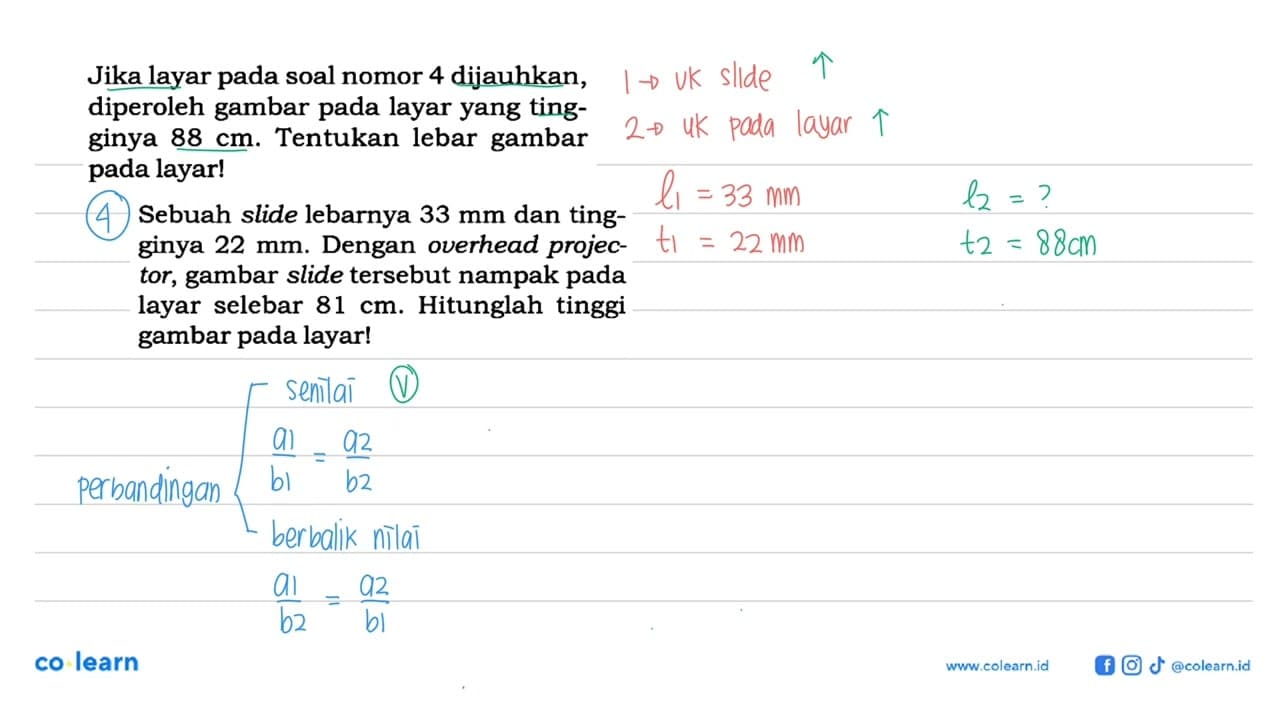 Jika layar pada soal nomor 4 dijauhkan,
diperoleh gambar pada layar yang ting-
ginya 88 cm. Tentukan lebar gambar
pada layar!
4
Sebuah slide lebarnya 33 mm dan ting-
ginya 22 mm. Dengan overhead projec-
tor, gambar slide tersebut nampak pada
layar selebar 81 cm. Hitunglah tinggi
gambar pada layar!
1 → uk slide ↑
2 → uk pada layar ↑
l1 = 33 mm
t1 = 22 mm
l2 = ?
t2 = 88 cm
perbandingan
senilai V
a1/b1 = a2/b2
berbalik nilai
a1/b2 = a2/b1
co learn
www.colearn.id
@colearn.id